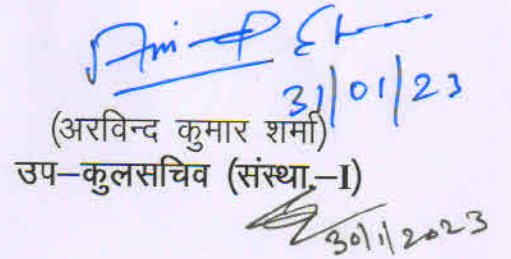 31/01/23
(अरविन्द कुमार शर्मा)
उप–कुलसचिव (संस्था.–I)
30/1/2023